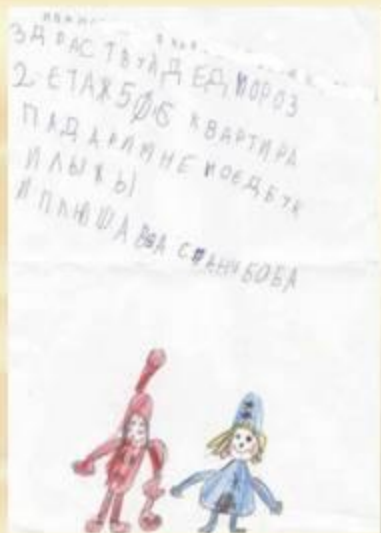 ЗДРАСТВУАДЕД МОРОЗ
2 ЕТАЖ 506 КВАРТИРА
ПАДАРИ МНЕ
И ЛЫЖЫ
И ПЛЮШАВВА СПАНЧ БОБА